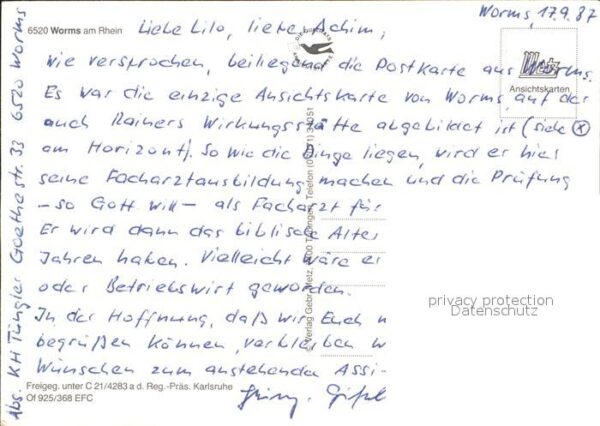 Worms, 17.9.87
6520 Worms am Rhein
Liebe Lilo, lieber Achim,
wie versprochen, beiliegend die Postkarte aus Worms.
Es war die einzige Ansichtskarte von Worms, auf der
auch Rainers Wirkungsstätte abgebildet ist (siehe ⓧ
am Horizont). So wie die Dinge liegen, wird er hier
seine Facharztausbildung machen und die Prüfung
- so Gott will - als Facharzt für
Er wird dann das biblische Alter
Jahren haben. Vielleicht wäre er
oder Betriebswirt geworden.
In der Hoffnung, daß wir Euch
begrüßen können, verbleiben w
Wünschen zum anstehenden Assi-
Metz
Ansichtskarten
Abs. KH Tüngler Goethestr. 33 6520 Worms
© Verlag Gebr. Metz, Tübingen, Telefon
privacy protection
Datenschutz
Freigeg. unter C 21/4283 a d. Reg.-Präs. Karlsruhe
Of 925/368 EFC